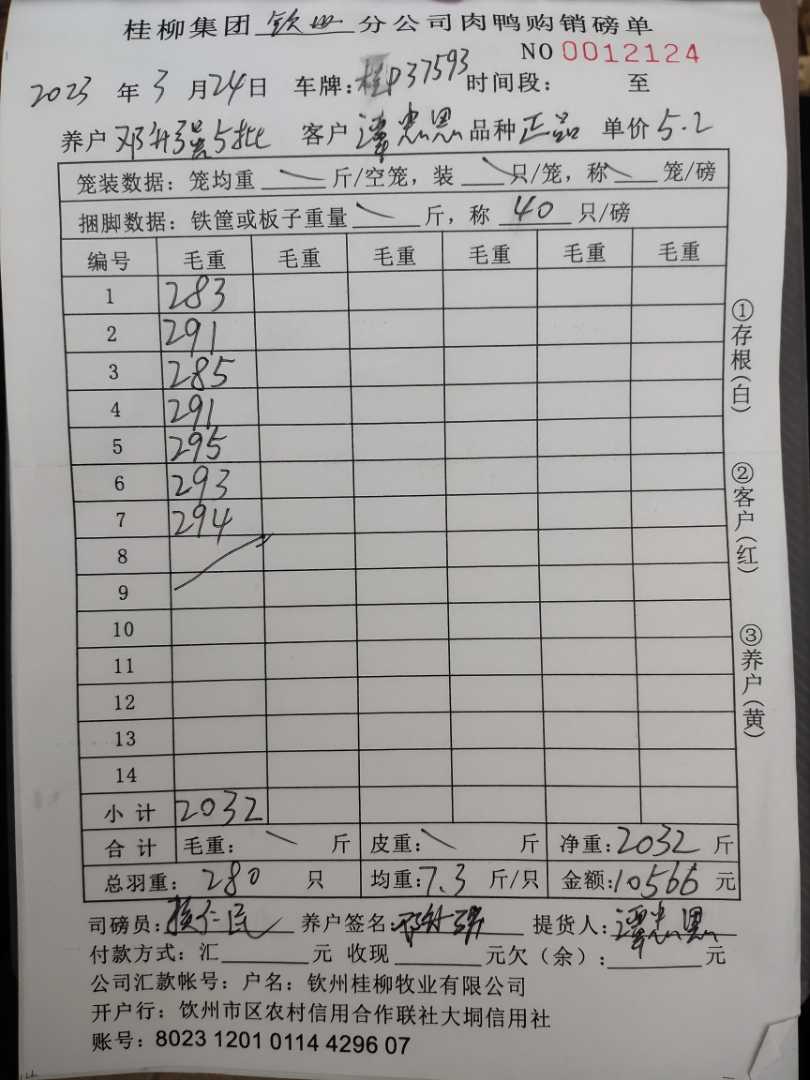 桂柳集团 钦州 分公司肉鸭购销磅单
NO 0012124
2023 年 3 月 24 日 车牌：桂P37593 时间段： 至
养户 邓升强5批 客户 谭忠恩 品种 正品 单价 5.2
笼装数据：笼均重 斤/空笼，装 只/笼，称 笼/磅
捆脚数据：铁筐或板子重量 斤，称 40 只/磅
编号 毛重 毛重 毛重 毛重 毛重 毛重
1 283
2 291
3 285
4 291
5 295
6 293
7 294
8
9
10
11
12
13
14
小计 2032
合计 毛重： 斤 皮重： 斤 净重：2032 斤
总羽重： 280 只 均重：7.3 斤/只 金额：10566 元
司磅员： 养户签名： 邓升强 提货人：谭忠恩
付款方式：汇 元 收现 元欠（余）： 元
公司汇款帐号：户名：钦州桂柳牧业有限公司
开户行：钦州市区农村信用合作联社大垌信用社
账号：8023 1201 0114 4296 07
①存根（白）
②客户（红）
③养户（黄）